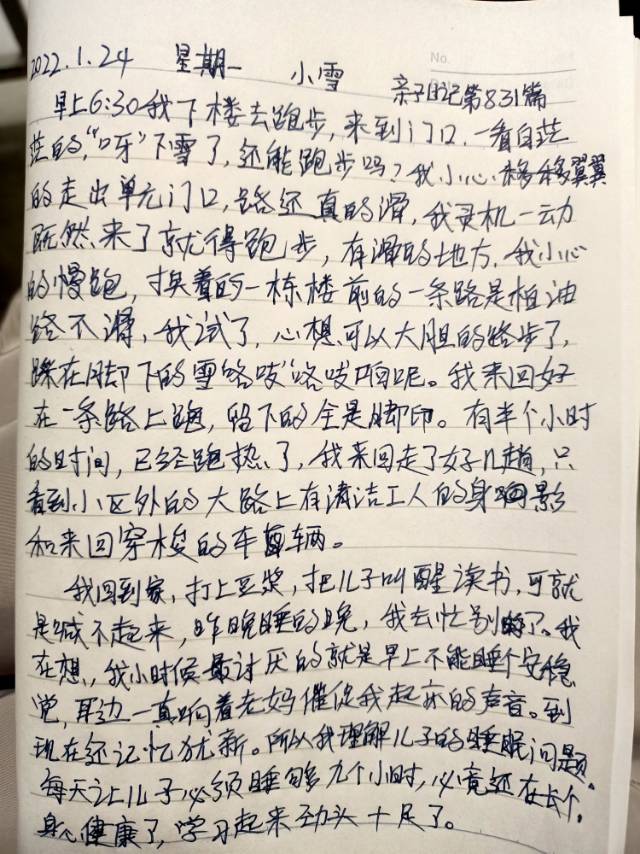 No.
2022.1.24 星期一 小雪 亲子日记第831篇
早上6:30我下楼去跑步,来到门口,一看白茫
茫的,“呀”下雪了,还能跑步吗?我小心移移翼翼
的走出单元门口,路还真的滑,我灵机一动
既然来了就得跑步,有滑的地方,我小心
的慢跑,挨着的一栋楼前的一条路是柏油
路不滑,我试了,心想可以大胆的跑步了,
踩在脚下的雪咯吱咯吱响呢。我来回好
在一条路上跑,留下的全是脚印。有半个小时
的时间,已经跑热了,我来回走了好几趟,只
看到小区外的大路上有清洁工人的身影
和来回穿梭的车辆。
我回到家,打上豆浆,把儿子叫醒读书,可就
是喊不起来,昨晚睡的晚,我去忙别的了。我
在想,我小时候最讨厌的就是早上不能睡个安稳
觉,耳边一直响着老妈催促我起床的声音。到
现在还记忆犹新。所以我理解儿子的睡眠问题.
每天让儿子必须睡够九个小时,必竟还在长个,
身心健康了,学习起来劲头十足了。